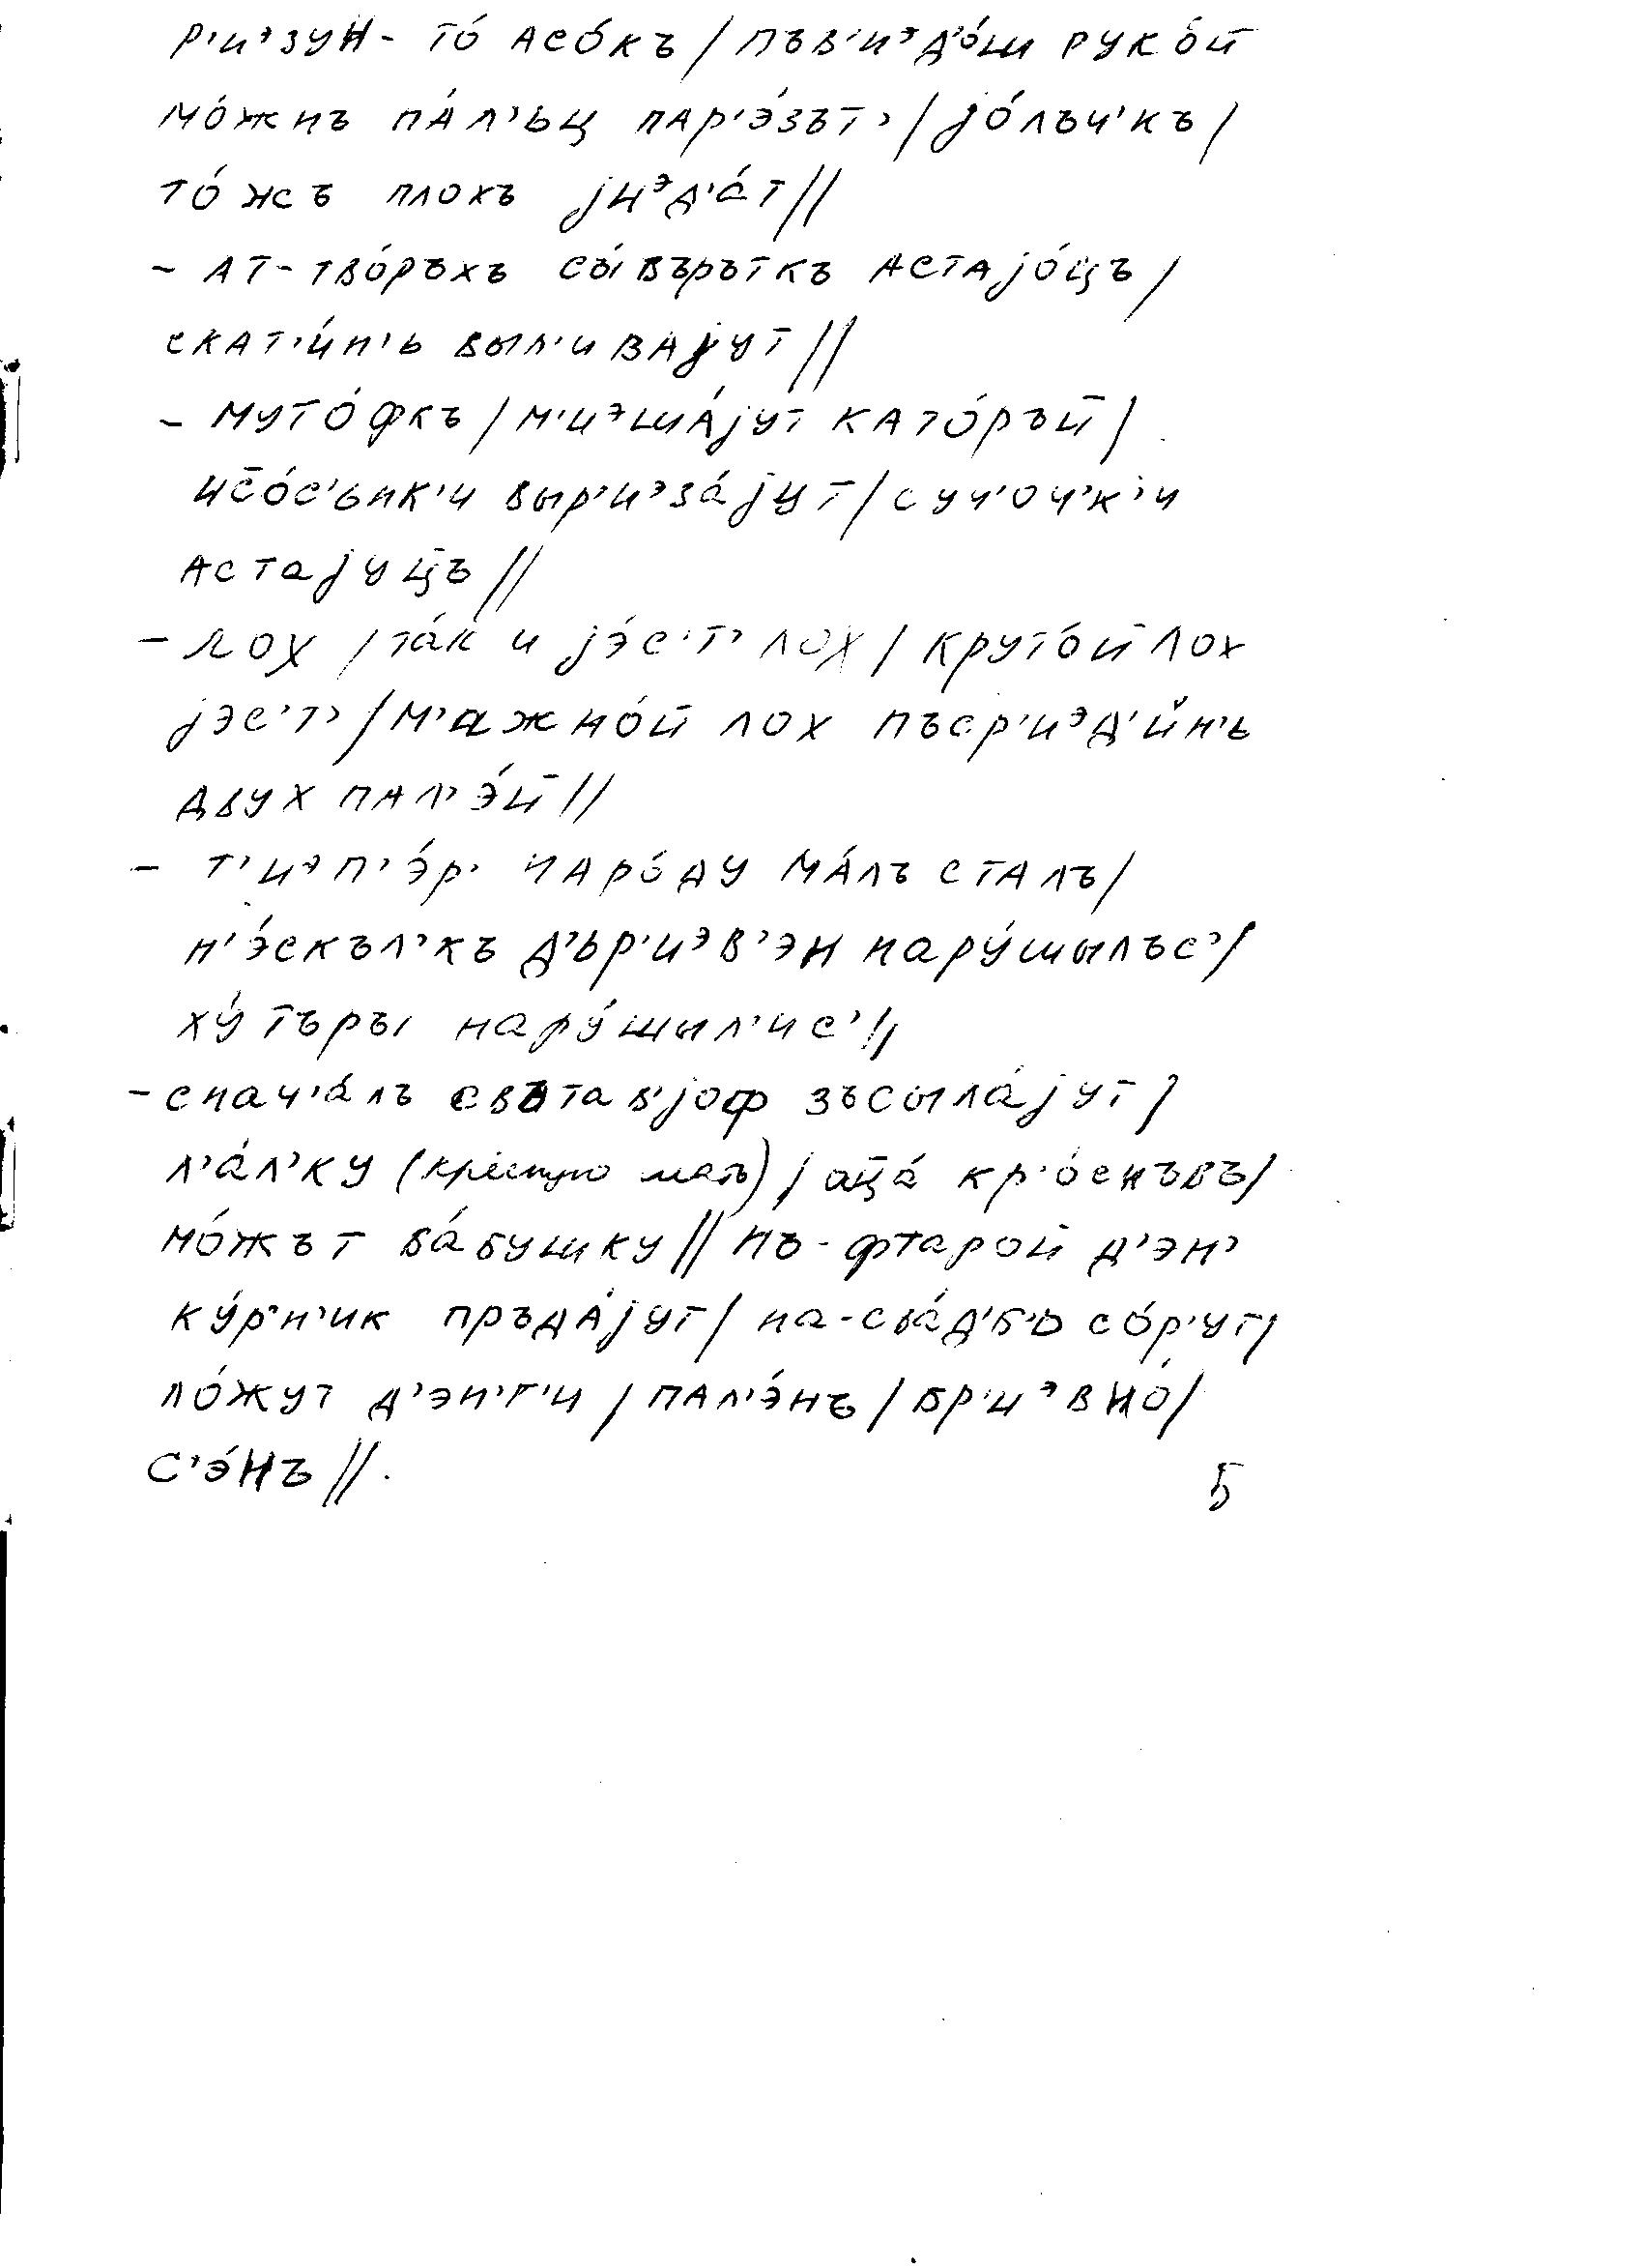 р'иᵊзун- то́ асо́къ / пъв'иᵊд'о́ш руко́й
мо́жнъ па́л'ьц пар'э́зът' / jо́лъч'къ /
то́жъ плохъ jиᵊд'а́т //
– ат-тво́ръхъ сы́въръткъ астаjо́цъ /
скат'и́н'ь выл'иваjут //
– муто́фкъ / м'иᵊша́jут като́ръй /
исо́с'ьнк'и выр'иᵊза́jут / суч'оч'к'и
астаjуцъ //
– лох / та́к и jэ́с'т' лох / круто́й лох
jэс'т' / м'ажно́й лох пъср'иᵊд'и́н'ь
двух пал'э́й //
– т'иᵊп'э́р' наро́ду ма́лъ сталъ /
н'э́скъл'къ д'ьр'иᵊв'эн нару́шылъс' /
ху́търы нару́шыл'ис' //
– снач'а́лъ свътав'jоф зъсыла́jут /
л'а́л'ку (крёстную мать) / аца́ кр'о́снъвъ /
мо́жът ба́бушку // нъ-фтарой д'эн'
ку́р'н'ик пръда́jут / на-сва́д'б'ь со́р'ут /
ло́жут д'эн'г'и / пал'э́нъ / бр'иᵊвно́ /
с'э́нъ //.
5